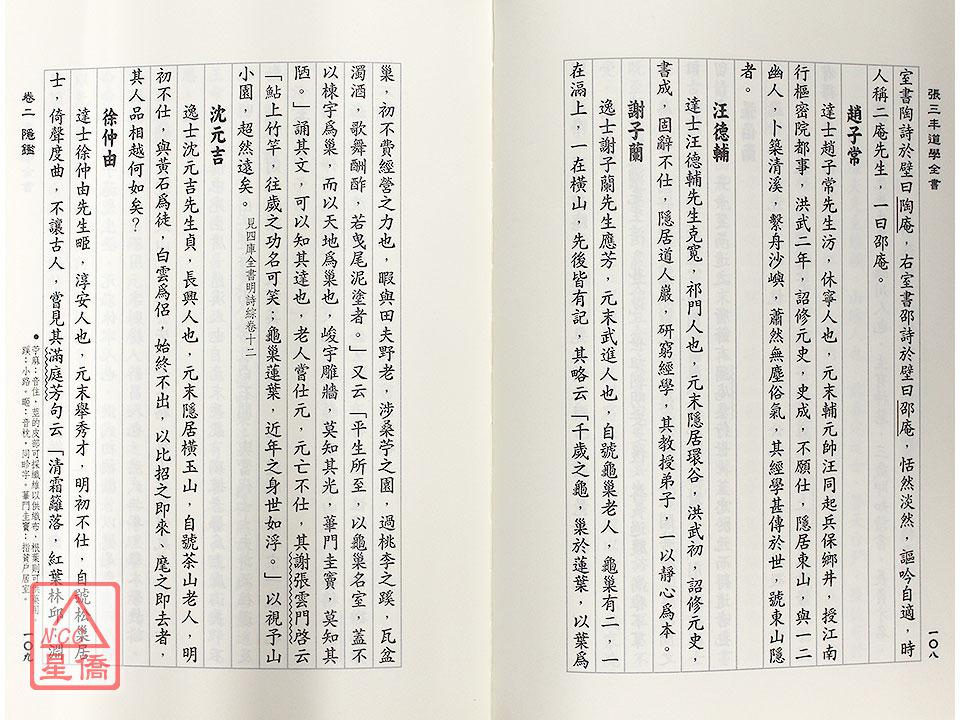 張三丰道學全書
一〇八
室書陶詩於壁曰陶庵，右室書邵詩於壁曰邵庵，恬然淡然，謳吟自適，時
人稱二庵先生，一曰邵庵。
趙子常
達士趙子常先生汸，休寧人也，元末輔元帥汪同起兵保鄉井，授江南
行樞密院都事，洪武二年，詔修元史，史成，不願仕，隱居東山，與一二
幽人，卜築清溪，繫舟沙嶼，蕭然無塵俗氣，其經學甚傳於世，號東山隱
者。
汪德輔
達士汪德輔先生克寬，祁門人也，元末隱居環谷，洪武初，詔修元史，
書成，固辭不仕，隱居道人巖，研窮經學，其教授弟子，一以靜心為本。
謝子蘭
逸士謝子蘭先生應芳，元末武進人也，自號龜巢老人，龜巢有二，一
在滆上，一在橫山，先後皆有記，其略云「千歲之龜，巢於蓮葉，以葉為
巢，初不費經營之力也，暇與田夫野老，涉桑苧之園，過桃李之蹊，瓦盆
濁酒，歌舞酬酢，若曳尾泥塗者。」又云「平生所至，以龜巢名室，蓋不
以棟宇為巢，而以天地為巢也，峻宇雕牆，莫知其光，蓽門圭竇，莫知其
陋。」誦其文，可以知其達也，老人嘗仕元，元亡不仕，其謝張雲門啓云
「鮎上竹竿，往歲之功名可笑；龜巢蓮葉，近年之身世如浮。」以視予山
小園　超然遠矣。 見四庫全書明詩綜卷十二
沈元吉
逸士沈元吉先生貞，長興人也，元末隱居橫玉山，自號茶山老人，明
初不仕，與黃石為徒，白雲為侶，始終不出，以比招之即來、麾之即去者，
其人品相越何如矣？
徐仲由
達士徐仲由先生㫤，淳安人也，元末舉秀才，明初不仕，自號松巢居
士，倚聲度曲，不讓古人，嘗見其滿庭芳句云「清霜籬落，紅葉林邱，淵
●苧麻：音住，莖的皮部可採纖維以供織布，根葉則可供藥用。
蹊：小路。㫤：音枕，同畛字。蓽門圭竇：指貧戶居室。
卷二 隱鑑
一〇九
N:CC
星僑